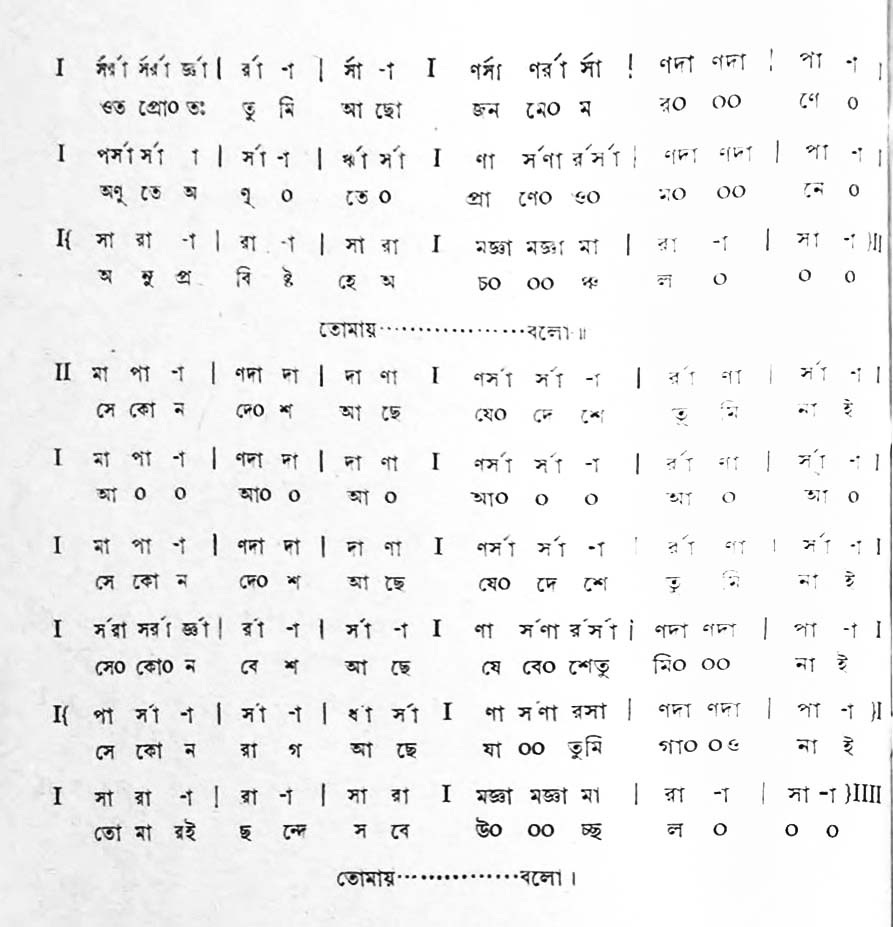 I র্সর্রা র্সর্রা র্জ্ঞা | র্রা -া | র্সা -া I ণর্সা ণর্রা র্সা | ণদা ণদা | পা -া |
ওত প্রো০ তঃ তু মি আ ছো জন নে০ ম র০ ০০ ণে ০
I পর্সা র্সা া | র্সা -া | র্ঋা র্সা I ণা র্সণা র্রর্সা | ণদা ণদা | পা -া |
অণু তে অ ণূ ০ তে ০ প্রা ণে০ ও০ ম০ ০০ নে ০
I{ সা রা -া | রা -া | সা রা I মজ্ঞা মজ্ঞা মা | রা -া | সা -া }II
অ নু প্র বি ষ্ট হে অ চ০ ০০ ঞ্চ ল ০ ০ ০
তোমায়··················বলো॥
II মা পা -া | ণদা দা | দা ণা I ণর্সা র্সা -া | র্রা ণা | র্সা -া I
সে কো ন দে০ শ আ ছে যে০ দে শে তু মি না ই
I মা পা -া | ণদা দা | দা ণা I ণর্সা র্সা -া | র্রা ণা | র্সা -া I
আ ০ ০ আ০ ০ আ ০ আ০ ০ ০ আ ০ আ ০
I মা পা -া | ণদা দা | দা ণা I ণর্সা র্সা -া | র্রা ণা | র্সা -া I
সে কো ন দে০ শ আ ছে যে০ দে শে তু মি না ই
I র্সরা সর্রা র্জ্ঞা | র্রা -া | র্সা -া I ণা র্সণা র্রর্সা | ণদা ণদা | পা -া I
সে০ কো০ ন বে শ আ ছে যে বে০ শেতু মি০ ০০ না ই
I{ পা র্সা -া | র্সা -া | র্ঋা র্সা I ণা র্সণা রসা | ণদা ণদা | পা -া }I
সে কো ন রা গ আ ছে যা ০০ তুমি গা০ ০ও না ই
I সা রা -া | রা -া | সা রা I মজ্ঞা মজ্ঞা মা | রা -া | সা -া }IIII
তো মা রই ছ ন্দে স বে উ০ ০০ চ্ছ ল ০ ০ ০
তোমায়···············বলো।